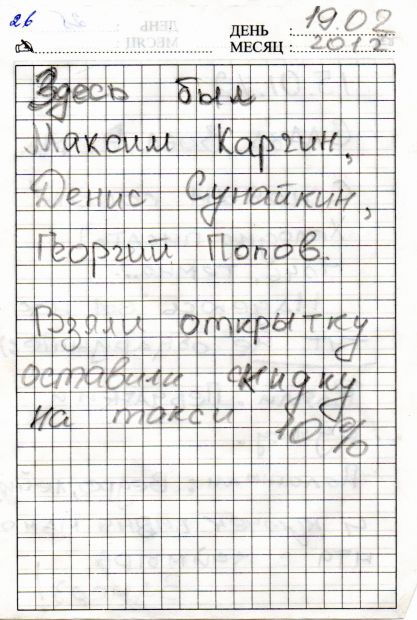 26
ДЕНЬ : 19.02
МЕСЯЦ : 2012
Здесь был
Максим Каргин,
Денис Сунайкин,
Георгий Попов.
Взяли открытку
оставили скидку
на такси 10%